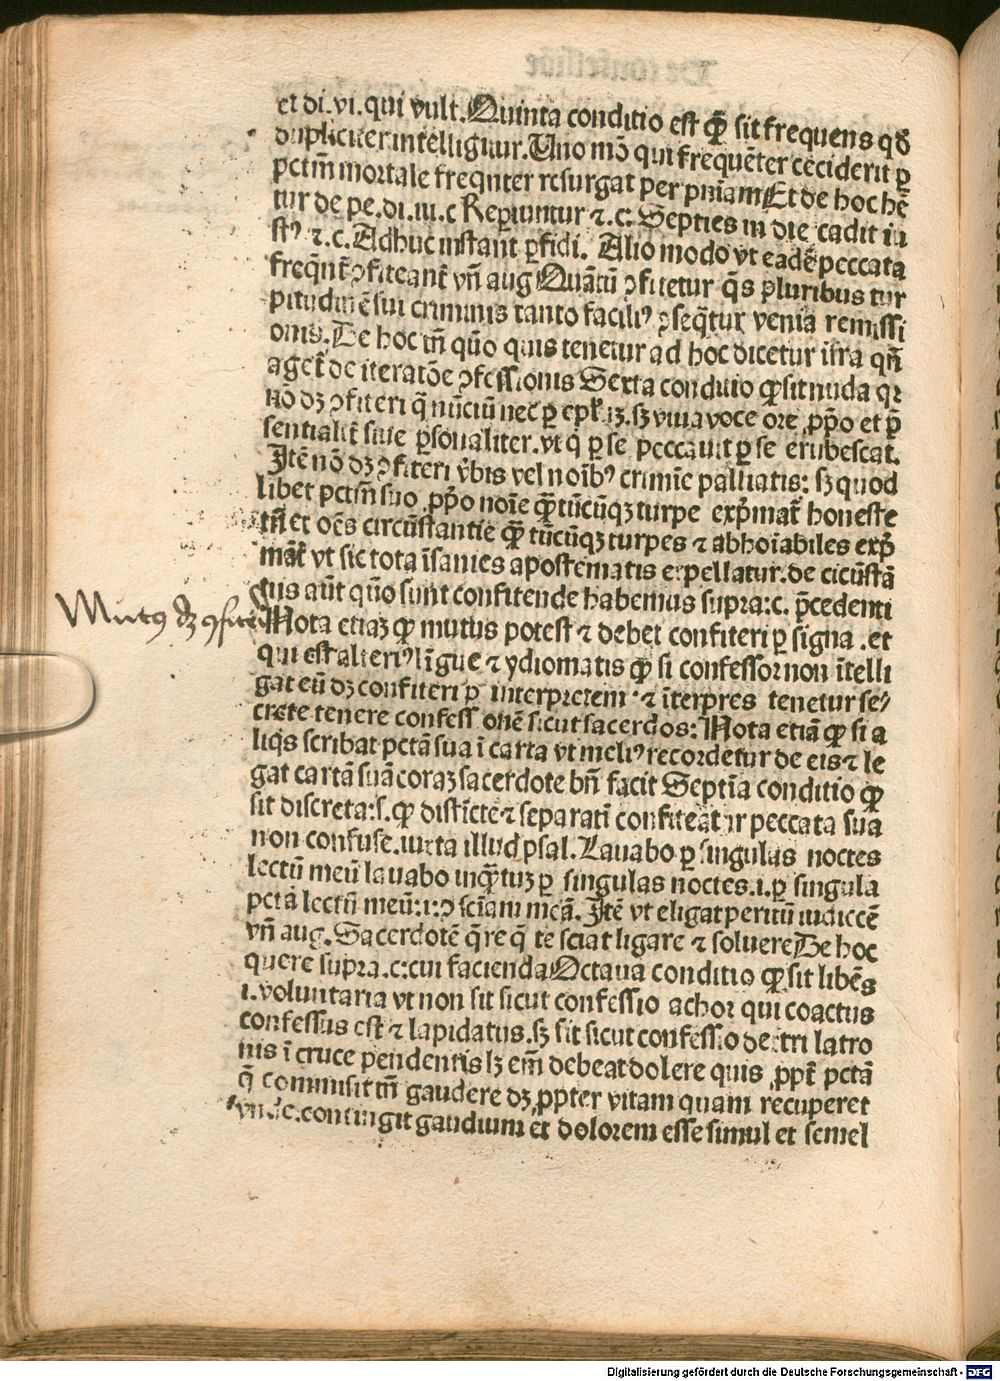 et di.vi.qui vult.Quinta conditio est ꝙ sit frequens qđ
dupliciter intelligitur.Uno mō qui frequēter ceciderit ꝑ
pctm̄ mortale freqn̄ter resurgat per pn̄iam Et de hoc hē
tur de pe.di.iii.c Reperiuntur ⁊.c: Septies in die cadit iu
stꝰ ⁊.c.Adhuc instant ꝑfidi. Alio modo vt eadē peccata
freqn̄t̄ ꝯfiteant̄ vn̄ aug Quātū ꝯfitetur q̄s pluribus tur
pitudinē sui criminis tanto faciliꝰ ꝯseq̄tur venia remissi
onis.De hoc tn̄ quō quis tenetur ad hoc dicetur īfra qn̄
aget̄ de iteratōe ꝯfessionis Sexta conditio ꝙ sit nuda qꝛ
nō dꝫ ꝯfiteri q̄ nūciū nec ꝑ epl̄ az.sꝫ viua voce ore ꝓpo et p̄
sentialit̄ siue ꝑsonaliter.vt q̄ ꝑ se peccauit ꝑ se erubescat.
Itē nō dꝫ ꝯfiteri v̄bis vel noībꝰ crimīe palliatis: sꝫ quod
libet pctm̄ suo ꝓpo noīe ꝙ̄tūcūqꝫ turpe exp̄mat̄ honeste
tn̄ et oēs circūstantie ꝙ̄tūcūqꝫ turpes ⁊ abhoīabiles exp̄
māt̄ vt sic tota īsanies apostematis expellatur.de cicūstā
tiis aūt quō sunt confitende habemus supra:c. p̄cedenti
Mutꝰ dꝫ ꝯfiteri
Nota etiaꝫ ꝙ mutus potest ⁊ debet confiteri ꝑ signa .et
qui est alteriꝰ līgue ⁊ ydiomatis ꝙ si confessor non ītelli
gat eū dꝫ confiteri ꝑ interpretem ⁊ īterpres tenetur se⸗
crete tenere confessionē sicut sacerdos: Nota etiā ꝙ si a
liq̄s scribat pctā sua ī carta vt meliꝰ recordetur de eis ⁊ le
gat cartā suā coraꝫ sacerdote bn̄ facit Septīa conditio ꝙ
sit discreta:s.ꝙ distīcte ⁊ separati confiteātur peccata sua
non confuse.iuxta illud psal.Lauabo ꝑ singulas noctes
lectū meū lauabo inquātuꝫ ꝑ singulas noctes.i.ꝑ singula
pctā lectū meū:i:ꝯsciam meā. Itē vt eligat peritū iudicē
vn̄ aug.Sacerdotē q̄re q̄ te sciat ligare ⁊ soluere De hoc
quere supra.c:cui facienda Octaua conditio ꝙ sit libēs
i.voluntaria vt non sit sicut confessio achor qui coactus
confessus est ⁊ lapidatus.sꝫ sit sicut confessio dextri latro
nis ī cruce pendentis lꝫ em̄ debeat dolere quis ꝓpt̄ pctā
q̄ commisit tn̄ gaudere dꝫ ꝓpter vitam quam recuperet
contingit gaudium et dolorem esse simul et semel
Digitalisierung gefördert durch die Deutsche Forschungsgemeinschaft - DFG